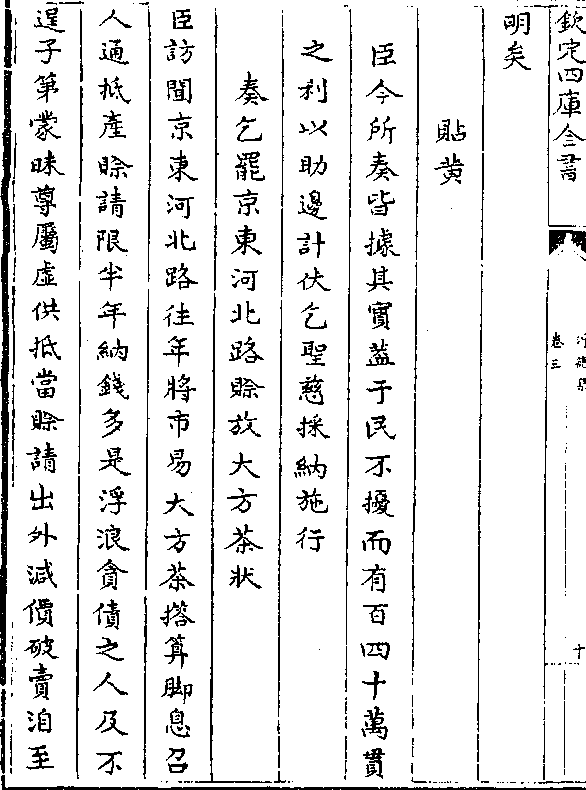 欽定四庫全書
卷三
十
明矣
貼黄
臣今所奏皆據其實葢于民不擾而有百四十萬貫
之利以助邊計伏乞聖慈採納施行
奏乞罷京東河北路賒放大方茶狀
臣訪聞京東河北路往年將市易大方茶撘算脚息召
人通抵產賒請限半年納錢多是浮浪貪債之人及不
逞子第蒙昧尊屬虛供抵當賒請出外減價破賣洎至